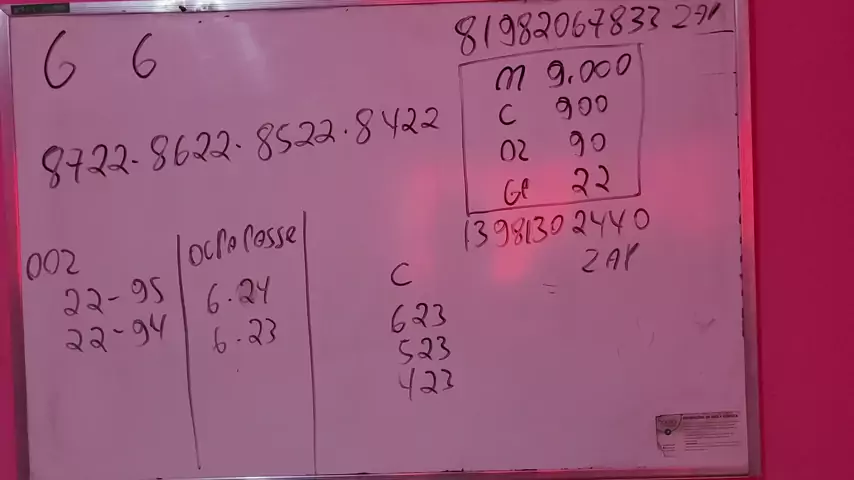 6 6
81982067833 ZAP
M 9.000
C 900
DZ 90
GP 22
13981302440
ZAP
8722-8622-8522-8422
002
22-95
22-94
6.24
6.23
C
623
523
423